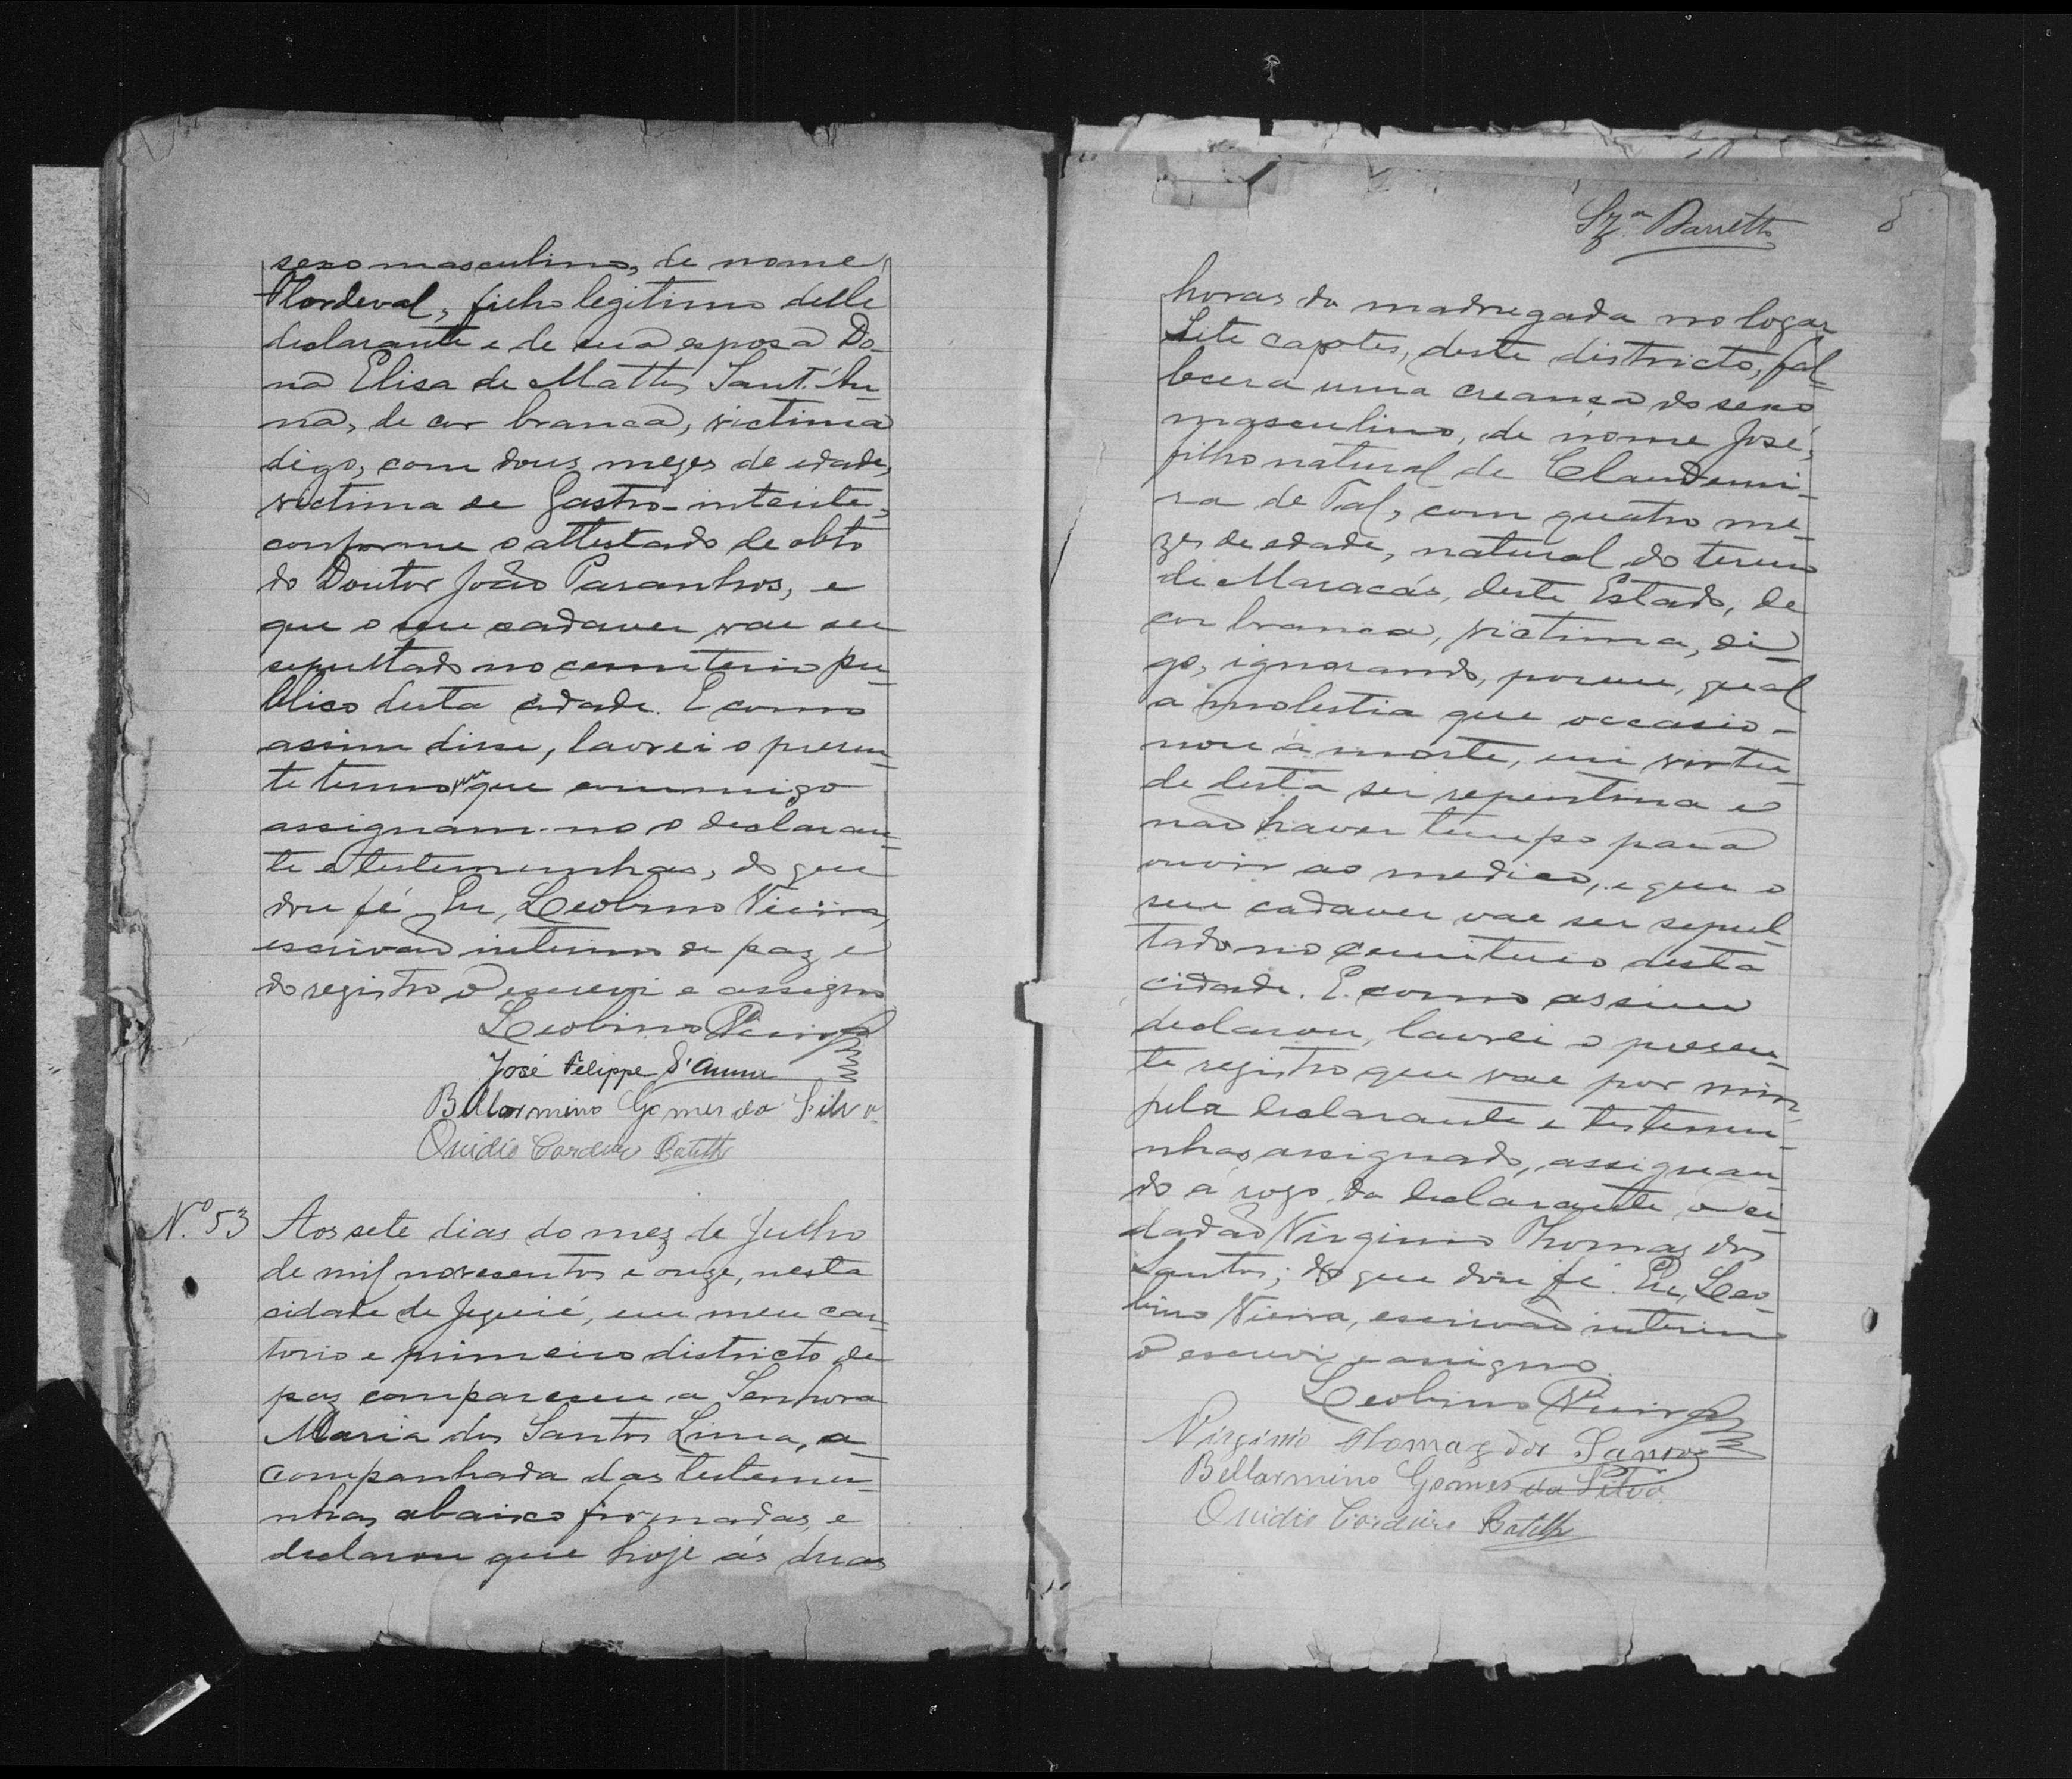 sexo masculino, de nome
Flordeval, filho legitimo delle
declarante e de sua esposa Do-
na Elisa de Mattos Sant'An-
na, de cor branca, victima
digo, com dous mezes de edade,
victima de Gastro-interite,
conforme o attestado de obto
do Doutor João Paranhos, e
que o seu cadaver vae ser
sepultado no cemiterio pu-
blico desta cidade. E como
assim disse, lavrei o presen-
te termo que commigo
assignam-no o declaran-
te e testemunhas, do que
dou fé. Eu, Leolino Vieira,
escrivão interino de paz e
do registro o escrevi e assigno
Leolino Vieira
José Felippe S'Anna
Bellarmino Gomes da Silva.
Ouidio Cordeiro Botelho
Nº 53 Aos sete dias do mez de Julho
de mil novesentos e onze, nesta
cidade de Jequié, em meu car-
torio e primeiro districto de
paz compareceu a Senhora
Maria dos Santos Lima, a-
companhada das testemu-
nhas abaixo firmadas, e
declarou que hoje ás duas
Barretto
horas da madrugada no logar
Sete capotes, deste districto, fal-
lecera uma creança do sexo
masculino, de nome José,
filho natural de Claudemi-
ra de Tal, com quatro me-
zes de edade, natural do termo
de Maracás, deste Estado, de
cor branca, victima, di-
go, ignorando, porem, qual
a molestia que occasio-
nou a morte, em virtu-
de desta ser repentina e
não haver tempo para
ouvir ao medico, e que o
seu cadaver vae ser sepul-
tado no cemiterio desta
cidade. E como assim
declarou, lavrei o presen-
te registro que vae por mim
pela declarante e testemu-
nhas assignado, assignan-
do a rogo da declarante o ci-
dadão Virginio Thomaz dos
Santos; do que dou fé. Eu, Leo-
lino Vieira, escrivão interino
o escrevi e assigno.
Leolino Vieira
Virginio Thomaz dos Santos
Bellarmino Gomes da Silva.
Ouidio Cordeiro Botelho